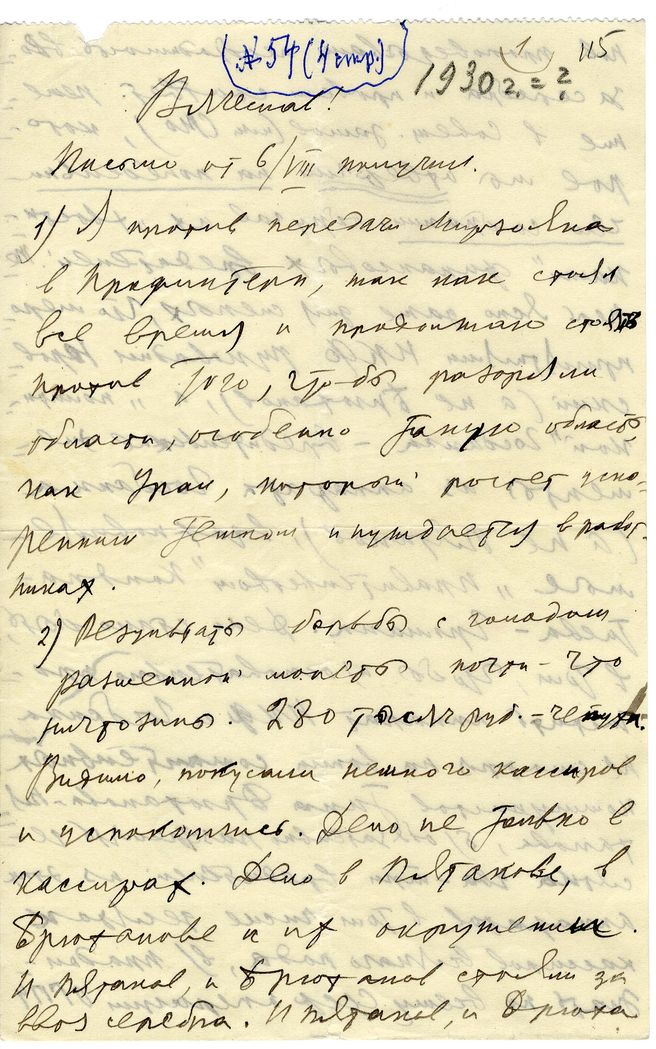 № 54 (4 стр.)
1
115
1930 г. = ?
Вячеслав!
Письмо от 6/VIII получил.
1) Я против передачи Мирзояна
в Профинтерн, так как стоял
все время и продолжаю стоять
против того, что-бы разоряли
области, особенно такую область,
как Урал, который ростет уско-
ренным темпом и нуждается в работ-
никах.
2) Результаты борьбы с голодом
разменной монеты почти-что
ничтожны. 280 тысяч руб. – чепуха.
Видимо, покусали немного кассиров
и успокоились. Дело не только в
кассирах. Дело в Пятакове, в
Брюханове и их окружении.
И Пятаков, и Брюханов стояли за
ввоз серебра. И Пятаков, и Брюха